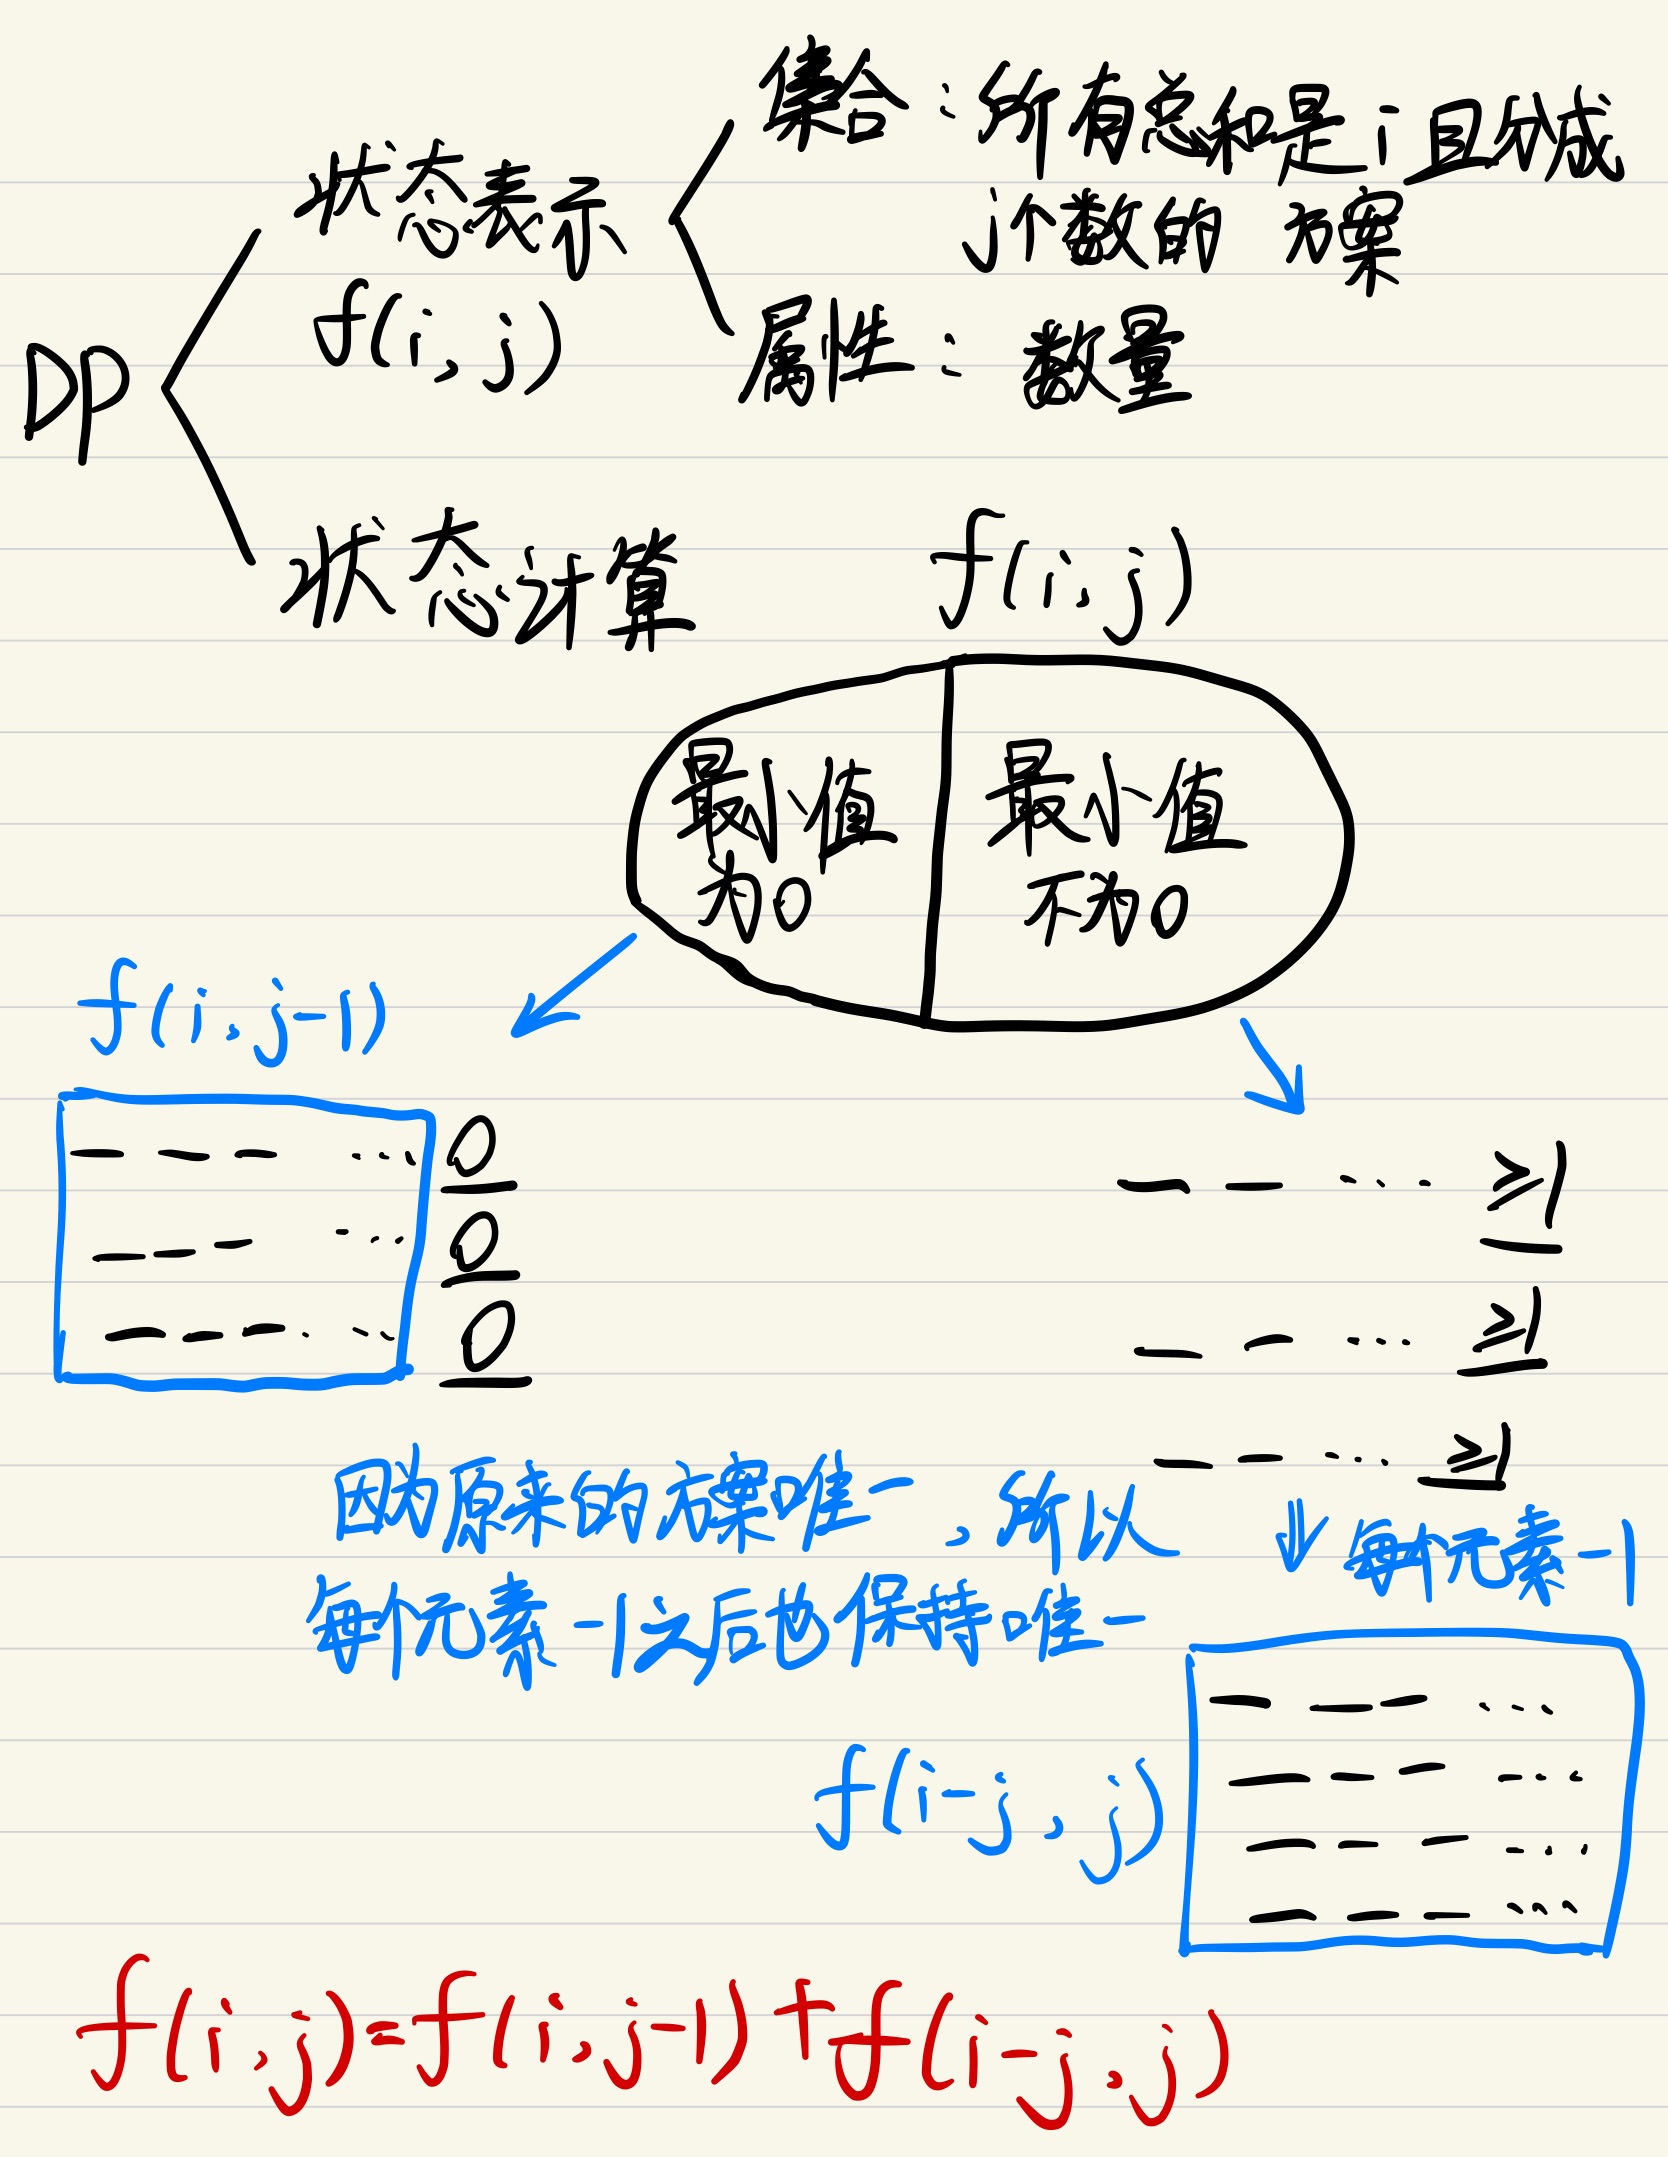 集合:所有总和是i且分成
j个数的 方案
状态表示
f(i,j)
属性:数量
DP
状态计算
f(i,j)
最小值
为0
最小值
不为0
f(i,j-1)
--- ... 0
--- ... 0
--- ... 0
-- ... ≥1
-- ... ≥1
-- ... ≥1
因为原来的方案唯一,所以
每个元素-1之后也保持唯一
⇓ 每个元素-1
f(i-j,j)
f(i,j)=f(i,j-1)+f(i-j,j)